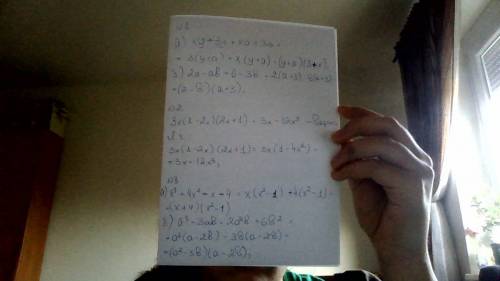 а) xy + + xa + 3a =
= 3(y+a) + x(y+a) = (y+a)(3+x);
2a - ab + 6 - 3b = 2(a+3) - b(a+3)
=(2-b)(a+3).
N2.
3x(1-2x)(2x+1) = 3x - 12x³
3x(1-2x)(2x+1) = 3x(1-4x²) =
= 3x - 12x³;
N3
а) x³ + 4x² - x - 4 = x(x²-1) + 4(x²-1) =
(x+4)(x²-1)
a³ - 3ab - 2a²b + 6b² =
= a²(a-2b) - 3b(a-2b) =
= (a²-3b)(a-2b);